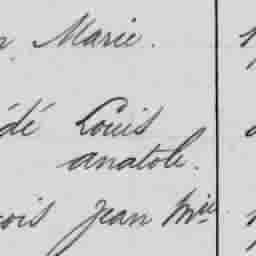 Marie.
dé Louis
anatole.
çois Jean Mie